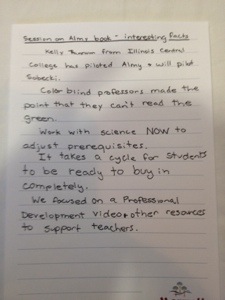 Session on Almy book - interesting facts
Kelly from Illinois Central
College has piloted Almy & will pilot
Sobecki.
Color blind professors made the
point that they can't read the
green.
Work with science NOW to
adjust prerequisites.
It takes a cycle for students
to be ready to buy in
completely.
We focused on a Professional
Development video & other resources
to support teachers.